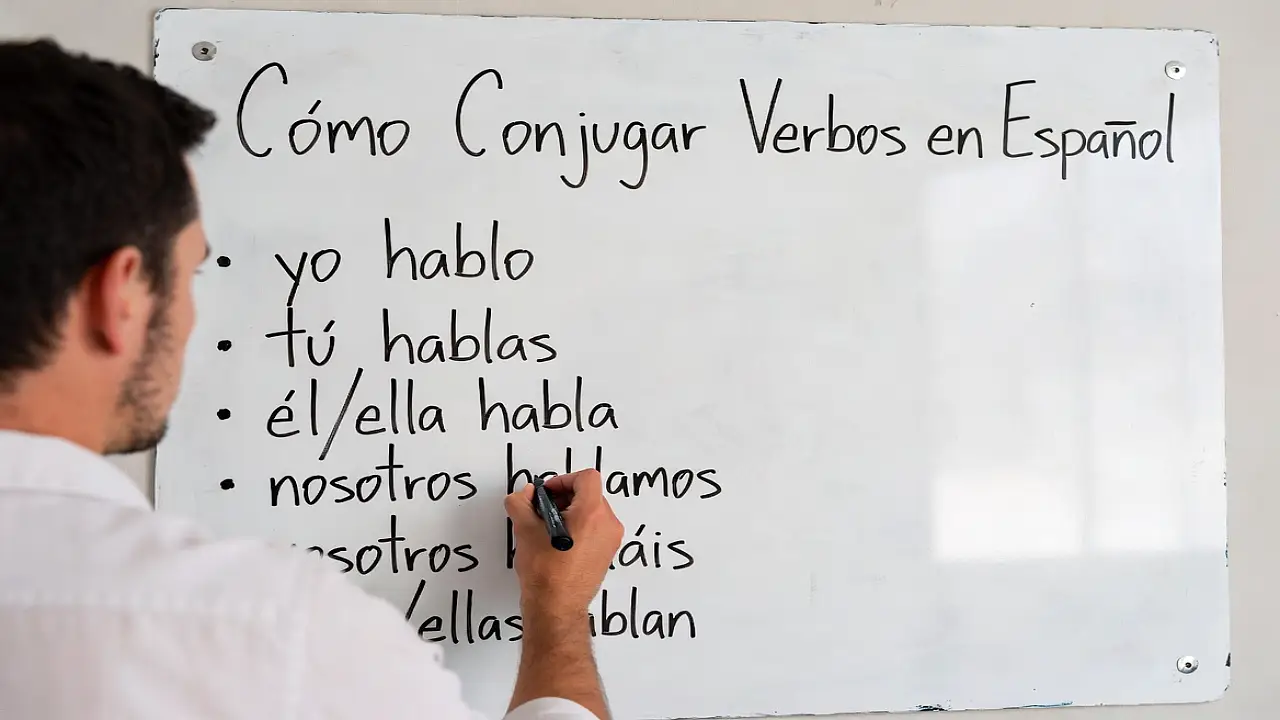 Cómo Conjugar Verbos en Español
• yo hablo
• tú hablas
• él/ella habla
• nosotros hablamos
/ellas hablan